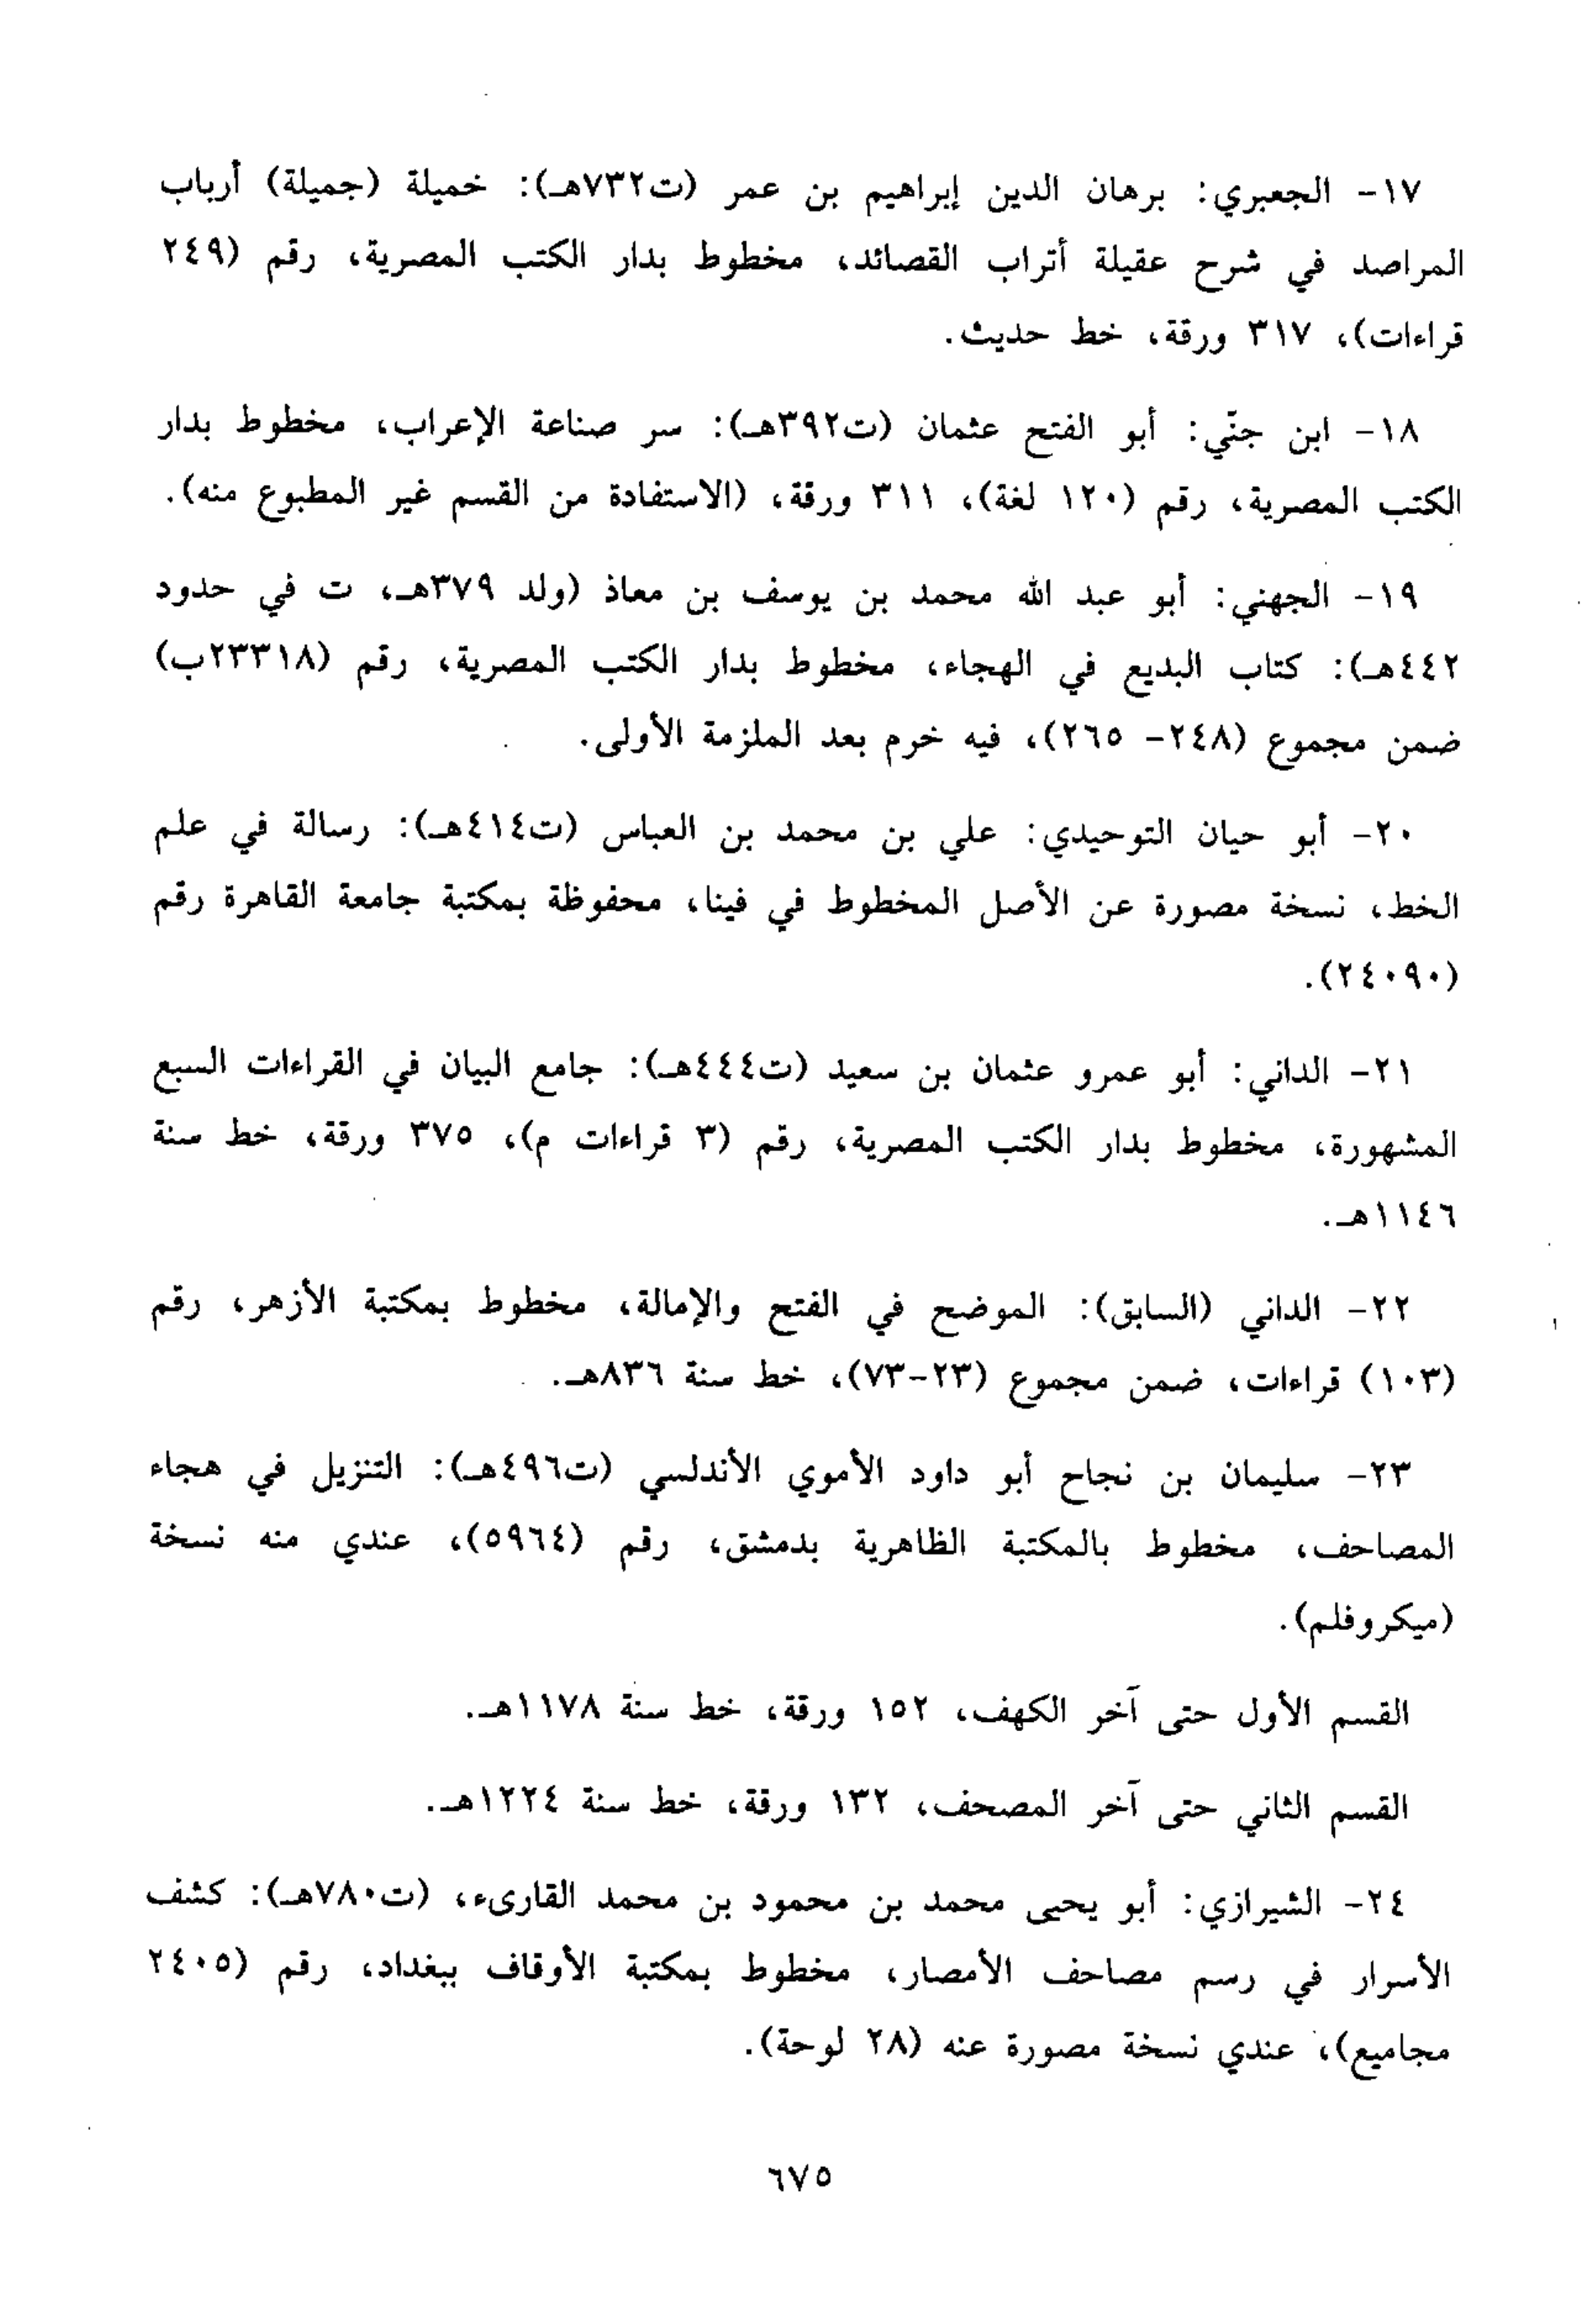 ١٧- الجعبري: برهان الدين إبراهيم بن عمر (ت٧٣٢هـ): خميلة (جميلة) أرباب
المراصد في شرح عقيلة أتراب القصائد، مخطوط بدار الكتب المصرية، رقم (٢٤٩
قراءات)، ٣١٧ ورقة، خط حديث.
١٨- ابن جنّي: أبو الفتح عثمان (ت٣٩٢هـ): سر صناعة الإعراب، مخطوط بدار
الكتب المصرية، رقم (١٢٠ لغة)، ٣١١ ورقة، (الاستفادة من القسم غير المطبوع منه).
١٩- الجهني: أبو عبد الله محمد بن يوسف بن معاذ (ولد ٣٧٩هـ، ت في حدود
٤٤٢هـ): كتاب البديع في الهجاء، مخطوط بدار الكتب المصرية، رقم (٢٣٣١٨ب)
ضمن مجموع (٢٤٨- ٢٦٥)، فيه خرم بعد الملزمة الأولى.
٢٠- أبو حيان التوحيدي: علي بن محمد بن العباس (ت٤١٤هـ): رسالة في علم
الخط، نسخة مصورة عن الأصل المخطوط في فينا، محفوظة بمكتبة جامعة القاهرة رقم
(٢٤٠٩٠).
٢١- الداني: أبو عمرو عثمان بن سعيد (ت٤٤٤هـ): جامع البيان في القراءات السبع
المشهورة، مخطوط بدار الكتب المصرية، رقم (٣ قراءات م)، ٣٧٥ ورقة، خط سنة
١١٤٦هـ.
٢٢- الداني (السابق): الموضح في الفتح والإمالة، مخطوط بمكتبة الأزهر، رقم
(١٠٣) قراءات، ضمن مجموع (٢٣-٧٣)، خط سنة ٨٣٦هـ.
٢٣- سليمان بن نجاح أبو داود الأموي الأندلسي (ت٤٩٦هـ): التنزيل في هجاء
المصاحف، مخطوط بالمكتبة الظاهرية بدمشق، رقم (٥٩٦٤)، عندي منه نسخة
(ميكروفلم).
القسم الأول حتى آخر الكهف، ١٥٢ ورقة، خط سنة ١١٧٨هـ.
القسم الثاني حتى آخر المصحف، ١٣٢ ورقة، خط سنة ١٢٢٤هـ.
٢٤- الشيرازي: أبو يحيى محمد بن محمود بن محمد القارىء، (ت٧٨٠هـ): كشف
الأسرار في رسم مصاحف الأمصار، مخطوط بمكتبة الأوقاف ببغداد، رقم (٢٤٠٥
مجاميع)، عندي نسخة مصورة عنه (٢٨ لوحة).
٦٧٥